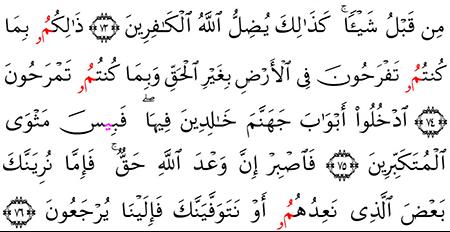 مِن قَبۡلُ شَيۡـًٔاۚ كَذَٰلِكَ يُضِلُّ ٱللَّهُ ٱلۡكَٰفِرِينَ ﴿٧٣﴾ ذَٰلِكُمُۥ بِمَا
كُنتُمُۥ تَفۡرَحُونَ فِي ٱلۡأَرۡضِ بِغَيۡرِ ٱلۡحَقِّ وَبِمَا كُنتُمُۥ تَمۡرَحُونَ
﴿٧٤﴾ ٱدۡخُلُوٓاْ أَبۡوَٰبَ جَهَنَّمَ خَٰلِدِينَ فِيهَاۖ فَبِيسَ مَثۡوَى
ٱلۡمُتَكَبِّرِينَ ﴿٧٥﴾ فَٱصۡبِرۡ إِنَّ وَعۡدَ ٱللَّهِ حَقّٞۚ فَإِمَّا نُرِيَنَّكَ
بَعۡضَ ٱلَّذِي نَعِدُهُمُۥ أَوۡ نَتَوَفَّيَنَّكَ فَإِلَيۡنَا يُرۡجَعُونَ ﴿٧٦﴾